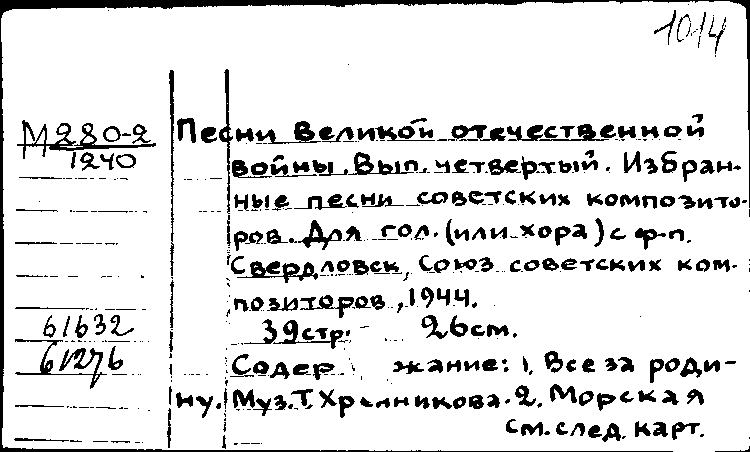 1014
М280-2 Песни Великой отечественной
1240 войны. Вып. четвертый. Избран-
ные песни советских композито-
ров. Для гол. (или хора) с ф-п.
Свердловск, Союз советских ком-
позиторов, 1944.
61632 39стр. 26см.
61276 Содержание: 1. Все за роди-
ну. Муз. Т. Хренникова. 2. Морская
см. след. карт.